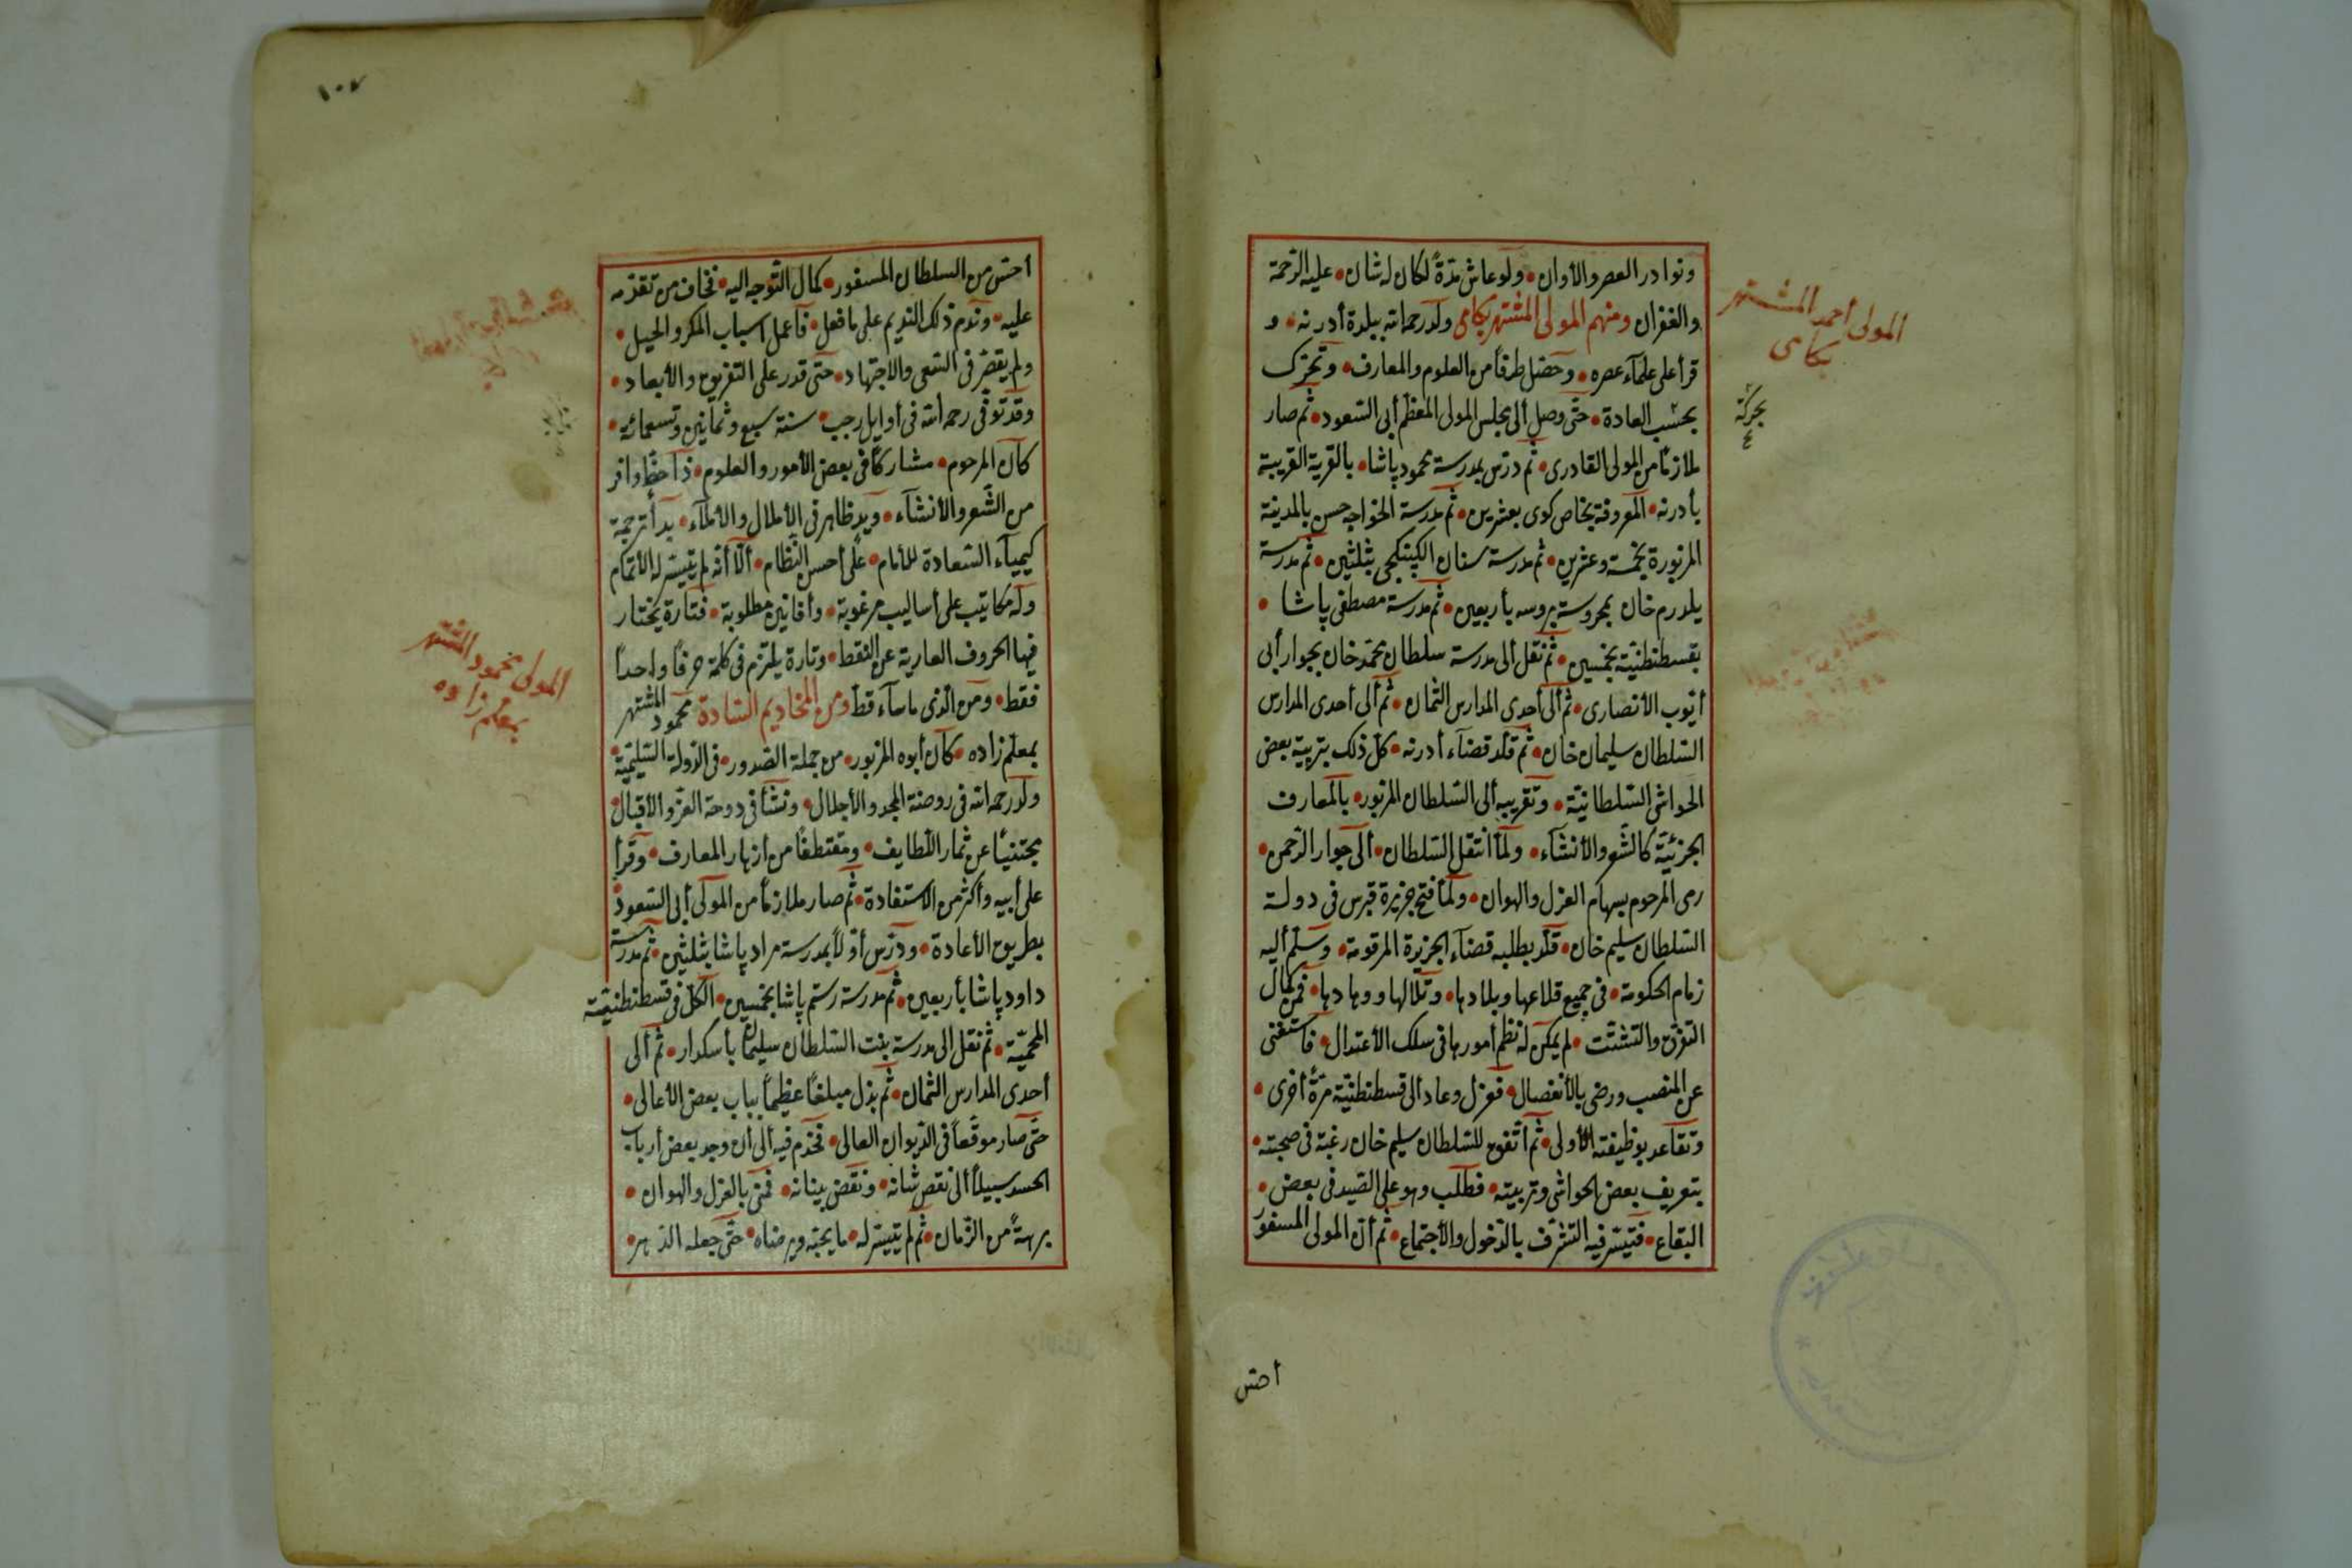 ونوادر العصر والأوان • ولو عاش مدّةً لكان له شان • عليه الرّحمة
والغفران ومنهم المولى المشتهر بكامى ولد رحمه الله ببلدة أدرنه • و
قرأ على علمآء عصره • وحصّل طرفاً من العلوم والمعارف • وتحرّك
بحسب العادة • حتّى وصل ألى مجلس المولى المعظّم أبى السّعود • ثم صار
ملازماً من المولى القادرى • ثم درّس بمدرسة محمود پاشا • بالقرية القريبة
بأدرنه • المعروفة بخاص كوى بعشرين • ثم مدرسة الخواجه حسن بالمدينة
المزبورة بخمسة وعشرين • ثم مدرسة سنان الكپنكجى بثلثين • ثم مدرسة
يلدرم خان بمحروسة بروسه بأربعين • ثم مدرسة مصطفى پاشا •
بقسطنطنيّة بخمسين • ثم نقل ألى مدرسة سلطان محمّد خان بجوار أبى
أيّوب الأنصارى • ثم ألى أحدى المدارس الثمان • ثم ألى أحدى المدارس
السّلطان سليمان خان • ثم قلّد قضآء أدرنه • كلّ ذلك بتربية بعض
الحواشى السّلطانيّة • وتقريبه ألى السّلطان المزبور • بالمعارف
الجزئيّة كالشّعر والأنشآء • ولمّا أنتقل السّلطان • ألى جوار الرّحمن •
رمى المرحوم بسهام العزل والهوان • ولمّا فتح جزيرة قبرس فى دولة
السّلطان سليم خان • قلّد بطلبه قضآء الجزيرة المرقومة • وسلّم أليه
زمام الحكومة • فى جميع قلاعها وبلادها • وتلالها ووهادها • فمن كمال
التفرّق والتشتّت • لم يمكن له نظم أمورها فى سلك الأعتدال • فاستغنى
عن المنصب ورضى بالأنفصال • فعزل وعاد ألى قسطنطنيّة مرّةً أخرى •
وتقاعد بوظيفته الأولى • ثم أتّفق للسّلطان سليم خان رغبة فى صحبته •
بتعريف بعض الحواشى وتربيته • فطلب وهو على الصّيد فى بعض •
البقاع • فتيسّر فيه التشرّف بالدّخول والأجتماع • ثم أنّ المولى المسفور
أحسّ
المولى أحمد المشتهر
بكامى
بحركة
٤
١٠٧
أحسّ من السلطان المسفور • كمال التّوجه اليه • فخاف من تقدّمه
عليه • وندم ذلك النديم على ما فعل • فأعمل اسباب المكر والحيل •
ولم يقصّر فى السّعى والاجتهاد • حتّى قدر على التفريق والأبعاد •
وقد توفّى رحمه الله فى أوايل رجب • سنة سبع وثمانين وتسعمائة •
كان المرحوم • مشاركاً فى بعض الأمور والعلوم • ذا حظّ وافر
من الشّعر والأنشآء • ويد ظاهر فى الأملال والأملآء • بدأ ترجمة
كيميآء السّعادة للأنام • على أحسن النّظام • ألّا أنّه لم يتيسّر له الأتمام
وله مكاتيب على أساليب مرغوبة • وأفانين مطلوبة • فتارة يختار
فيها الحروف العارية عن النّقط • وتارة يلتزم فى كلمة حرفاً واحداً
فقط • ومن الّذى ما سآء قط ومن المخاديم السّادة محمود المشتهر
بمعلّم زاده • كان أبوه المزبور • من جملة الصّدور • فى الدّولة السّليميّة •
ولد رحمه الله فى روضة المجد والأجلال • ونشأ فى دوحة العزّ والأقبال •
مجتنياً عن ثمار اللّطايف • ومقتطفاً من أزهار المعارف • وقرأ
على أبيه وأكثر من الاستفادة • ثم صار ملازماً من المولى أبى السّعود •
بطريق الأعادة • ودرّس أوّلاً بمدرسة مراد پاشا بثلثين • ثم مدرسة
داود پاشا بأربعين • ثم مدرسة رستم پاشا بخمسين • الكلّ فى قسطنطنيّة
المحميّة • ثم نقل الى مدرسة بنت السّلطان سليمان بأسكدار • ثم ألى
أحدى المدارس الثمان • ثم بذل مبلغاً عظيماً بباب بعض الأعالى •
حتّى صار موقّعاً فى الدّيوان العالى • فخدم فيه ألى أن وجد بعض أرباب
الحسد سبيلاً ألى نقص شانه • ونقض بنيانه • فمنى بالعزل والهوان •
برهةً من الزّمان • ثم لم يتيسّر له • ما يحبّه ويرضاه • حتّى جعله الدّهر •
المولى محمود المشتهر
بمعلّم زاده